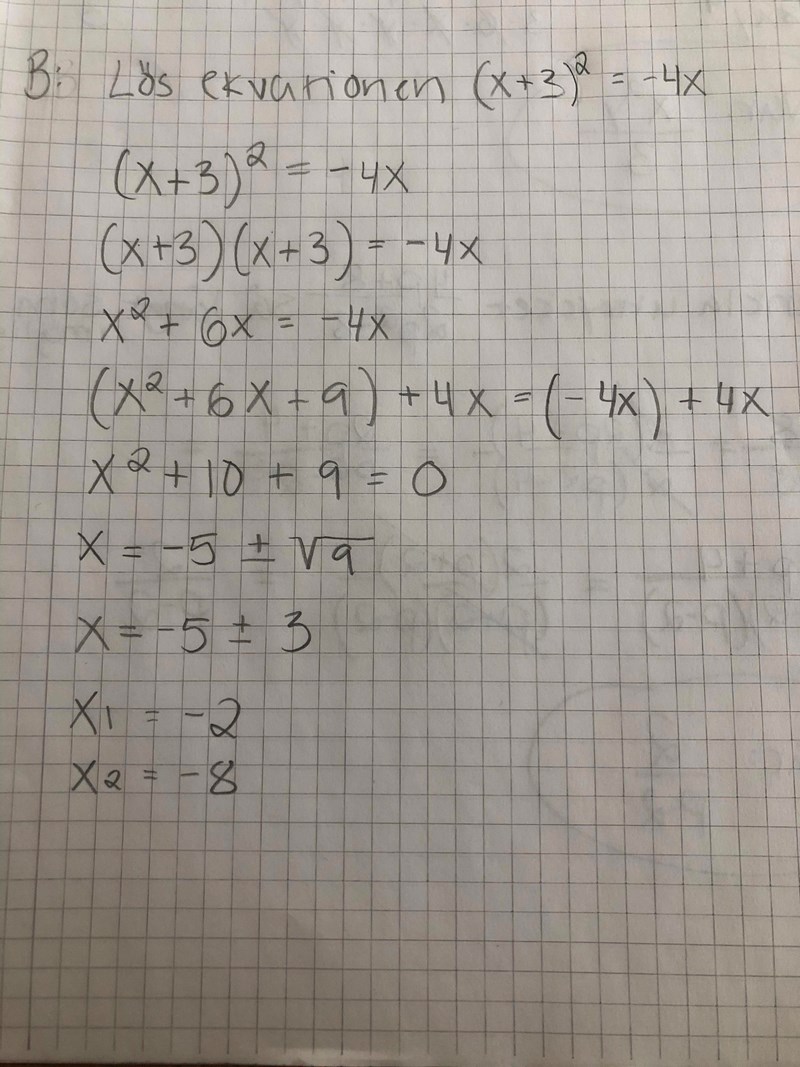 B: Lös ekvationen (x+3)² = -4x
(x+3)² = -4x
(x+3)(x+3) = -4x
x² + 6x = -4x
(x² + 6x + 9) + 4x = (-4x) + 4x
x² + 10 + 9 = 0
x = -5 ± √9
x = -5 ± 3
x1 = -2
x2 = -8